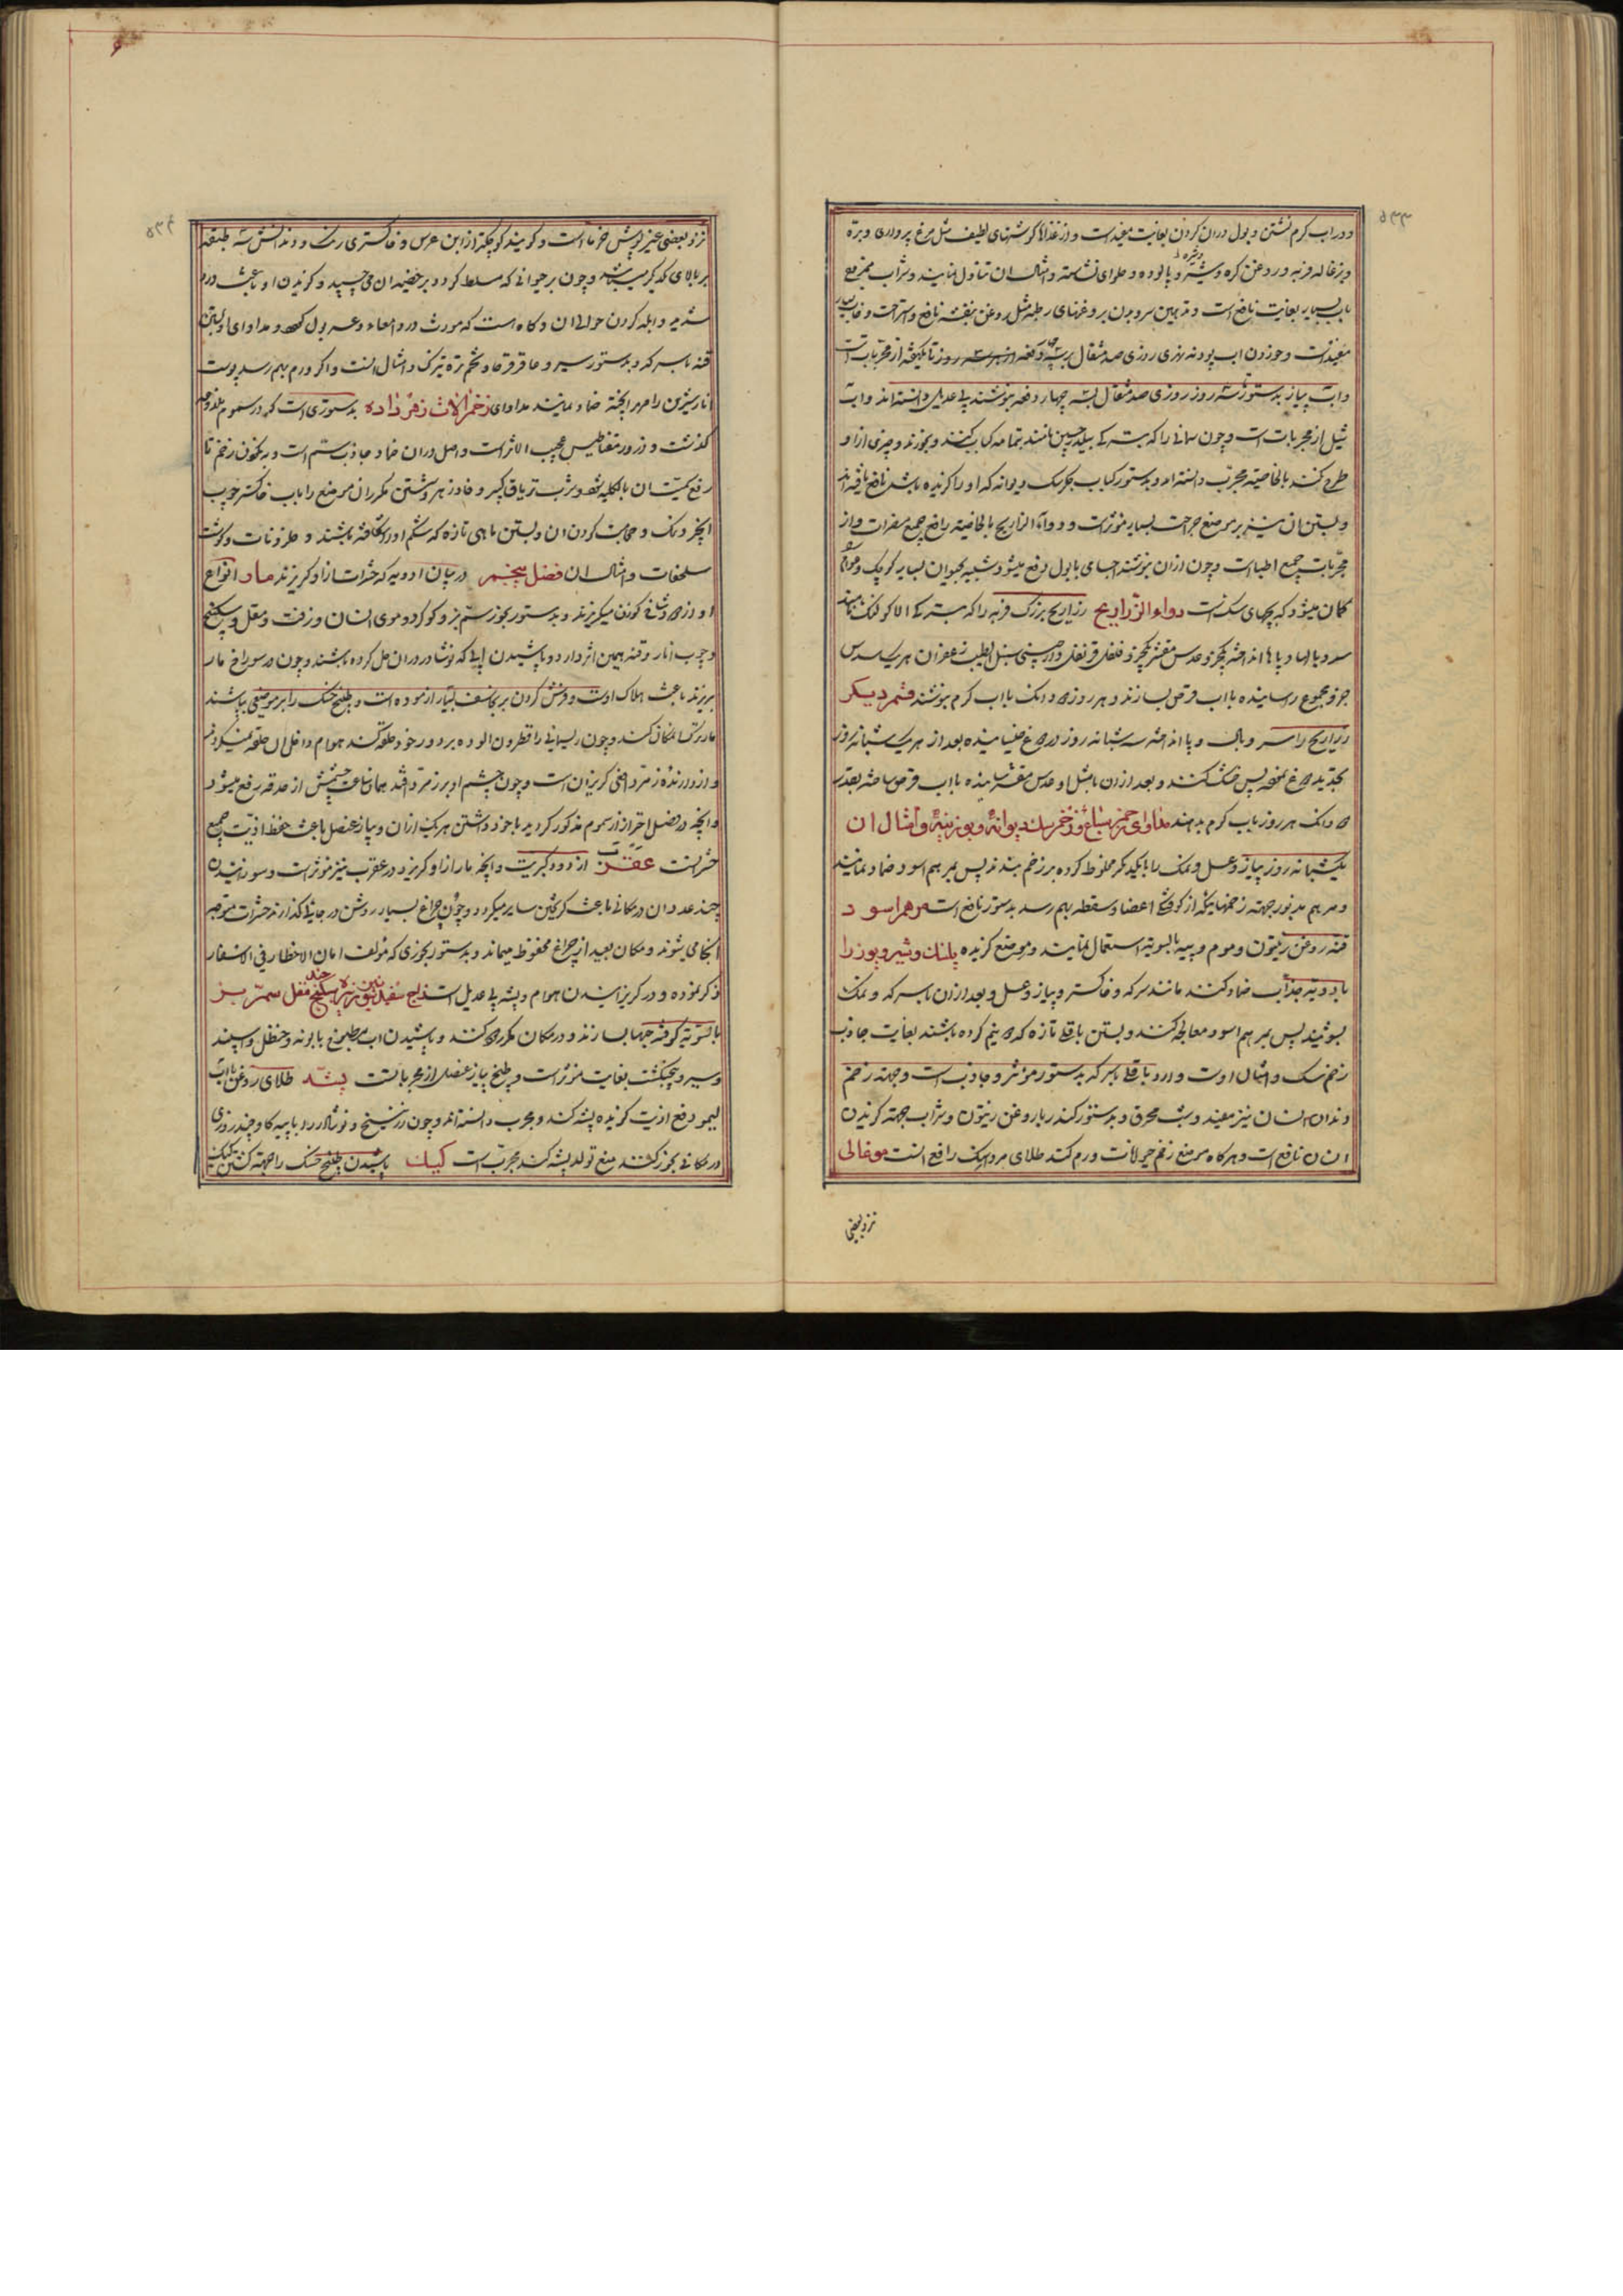 ۵۳۳
و در اب کرم نشستن و بول در ان کردن بغایت مفید است و از غذاها کوشتهای لطیف مثل مرغ پرواری و بره
و بزغاله فربه و روغن کره و شیر و پالوده و حلوای نشاسته و امثال ان تناول نمایند و شراب ممزوج
باب بسیار بغایت نافع است و تدهین سر و بدن بروغنهای رطبه مثل روغن بنفشه نافع و استراحت و خواب بسیار
مفید است و خوردن اب پودنه نهری روزی صد مثقال روز تا یکهفته از مجربات است
و اب پیاز بدستور سه روز روزی صد مثقال بسه چهار دفعه بنوشند بی عدیل دانسته اند و اب
از مجربات است و چون را که کباب کنند و بخورند و چیزی از او
طرح کنند بالخاصیه مجرب دانسته اند و بدستور کباب جکر سک دیوانه که او را کزیده باشد نافع یافته اند
و بستن ان نیز بر موضع جراحت بسیار مؤثر است و دواء الذراریح بالخاصیه رافع جمیع مضرات و از
مجربات جمیع اطبا است و چون از ان بنوشند با بول دفع میشود شبیه بحیوان بسیار کوچک و عوام
کمان میشود که بچهای سک است دواء الذراریح ذراریح بزرک فربه را که
سر و بالها و پاها انداخته یکجزو عدس مقشر یکجزو فلفل قرنفل دارچینی سنبل الطیب زعفران هریک سدس
جزو مجموع را سائیده با اب قرص سازند و هر روز دو دانک با اب کرم بنوشند قسم دیکر
ذراریح را سر و بال و پا انداخته سه شبانه روز در دوغ خیسانیده بعد از هر یک شبانه روز
تجدید دوغ نموده پس خشک کنند و بعد از ان با مثل او عدس مقشر سائیده با اب قرص ساخته بقدر
دو دانک هر روز باب کرم بدهند مداوای زخم سباع و زخم سک دیوانه و بوزینه و امثال ان
یکشبانه روز پیاز و عسل و نمک را با یکدیکر مخلوط کرده بر زخم بندند پس بمرهم اسود ضماد نمایند
و مرهم مذبور جهته زخمهائیکه از کوفتکی اعضا و سقطه بهم رسد بدستور نافع است مرهم اسود
قنه روغن زیتون و موم و پیه بالسویه استعمال نمایند و موضع کزیده پلنک و شیر و یوز را
بادویه جذاب ضماد کنند مانند سرکه و خاکستر و پیاز و عسل و بعد از ان با سرکه و نمک
بشویند پس بمرهم اسود معالجه کنند و بستن باقلی تازه که دو نیم کرده باشند بغایت جاذب
زخم سک و امثال اوست و ارد باقلی با سرکه بدستور مؤثر و جاذب است و جهته زخم
دندان انسان نیز مفید و شبت محرق و بدستور کندر با روغن زیتون و شراب جهته کزیدن
انسان نافع است و هرکاه موضع زخم حیوانات ورم کند طلای مرداسنک رافع انست موغالی
نزد بعضی
۵۳۴
نزد بعضی غیر موش خرما است و کویند کوچکتر از ابن عرس و خاکستری رنک و دندانش سه طبقه
بر بالای یکدیکر میباشد و چون بر حیوانی که مسلط کردد بر خصیه ان می چسپد و کزیدن او باعث درد
شدید و ابله کردن حوالی ان و کاه است که مورث درد امعاء و عسر بول کردد و مداوای او بستن
قنه با سرکه و بدستور سیر و عاقرقرحا و تخم تره تیزک و امثال انست و اکر ورم بهم رسد پوست
انار شیرین را مهرا پخته ضماد نمایند مداوای زخم الات زهر داده بدستوریست که در سموم
کذشت و ذرور مغناطیس عجیب الاثر است و اصل در ان ضماد جاذب سم است و خون زخم تا
رفع سمیت ان بالکلیه شود و شرب تریاق کبیر و فادزهر و شستن مکرر ان موضع را باب خاکستر چوب
انجیر و نمک و حجامت کردن ان و بستن ماهی تازه که شکم او را شکافته باشند و حلزونات و کوشت
سلحفات و امثال ان فصل پنجم در بیان ادویه که حشرات از او کریزند مار انواع
او از دود شاخ کوزن میکریزند و بدستور بخور سم بز و کوکرد و موی انسان و زفت و مقل و سکبینج
و چوب انار و قنه همین اثر دارد و پاشیدن ابی که نوشادر در ان حل کرده باشند و چون در سوراخ مار
بریزند باعث هلاک اوست و فرش کردن برنجاسف بسیار ازموده است و طبیخ حسک را بر موضعی بپاشند
مار ترک انمکان کند و چون ریسمانی را قطران الوده بر دور خود حلقه کنند هوام داخل ان حلقه نمیکردند
و از دارنده زمرد افعی کریزان است و چون چشم او بر زمرد افتد همان ساعت چشمش از حدقه رفع میشود
و انچه در فصل احتراز از سموم مذکور کردید با خود داشتن هر یک از ان و پیاز عنصل باعث حفظ اذیت جمیع
حشراتست عقرب از دود کبریت و انچه مار از او کریزد در عقرب نیز مؤثر است و سوزانیدن
چند عدد ان در مکانی باعث کریختن سایر میکردد و چون چراغ بسیار روشن در جائی کذارند حشرات متوجه
انجا می شوند و مکان بعید از چراغ محفوظ میماند و بدستور بخوری که مؤلف امان الاخطار فی الاسفار
ذکر نموده و در کریزانیدن هوام و پشه بی عدیل است سکبینج مقل سم بز
بالسویه کوفته حبها بسازند و در مکان مکرر دود کنند و پاشیدن اب مطبوخ بابونه و حنظل و اسپند
و سیر و پنجنکشت بغایت مؤثر است و طبیخ پیاز عنصل از مجرباتست پشه طلای روغن با اب
لیمو دفع اذیت کزیدن پشه کند و مجرب دانسته اند و چون زرنیخ و نوشادر را با پیه کاو چند روزی
در مکانی بخور کنند منع تولد پشه کند مجرب است کیک پاشیدن طبیخ حسک را جهته کشتن کیک